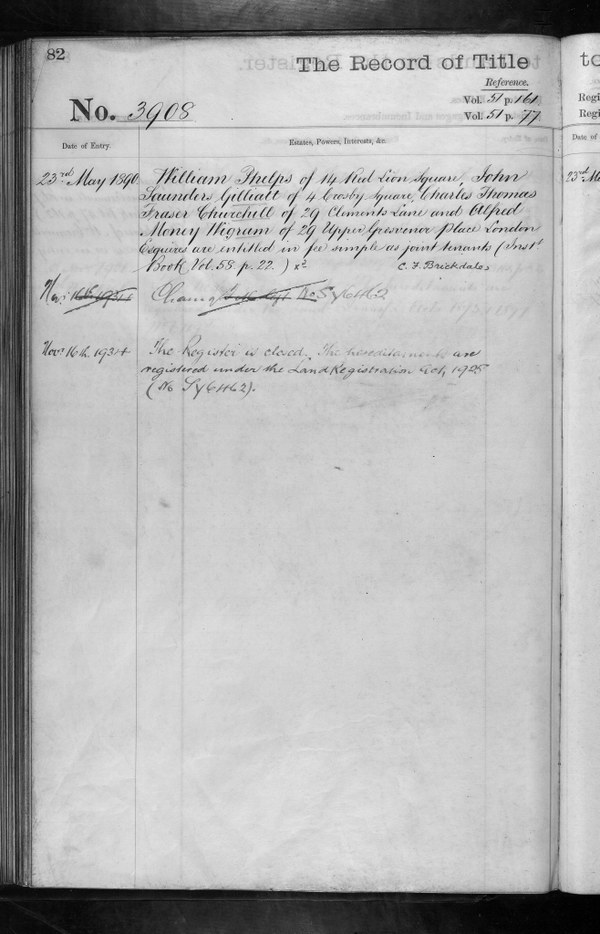 82
The Record of Title
Reference.
No. 3908
Vol. 51 p. 161
Vol. 51 p. 77
Date of Entry.
Estates, Powers, Interests, &c.
23rd May 1890
William Phelps of 14 Red Lion Square, John
Saunders Gilliatt of 4 Crosby Square, Charles Thomas
Fraser Churchill of 29 Clements Lane and Alfred
Money Wigram of 29 Upper Grosvenor Place London
Esquires are entitled in fee simple as joint tenants (Inst
Book, Vol. 58. p. 22.)
C. F. Brickdale
Nov 16th 1934
No Sy6462
Novr 16th. 1934
The Register is closed. The hereditaments are
registered under the Land Registration Act, 1925
(No Sy6462).
to
Regi
Regi
Date of
23rd M